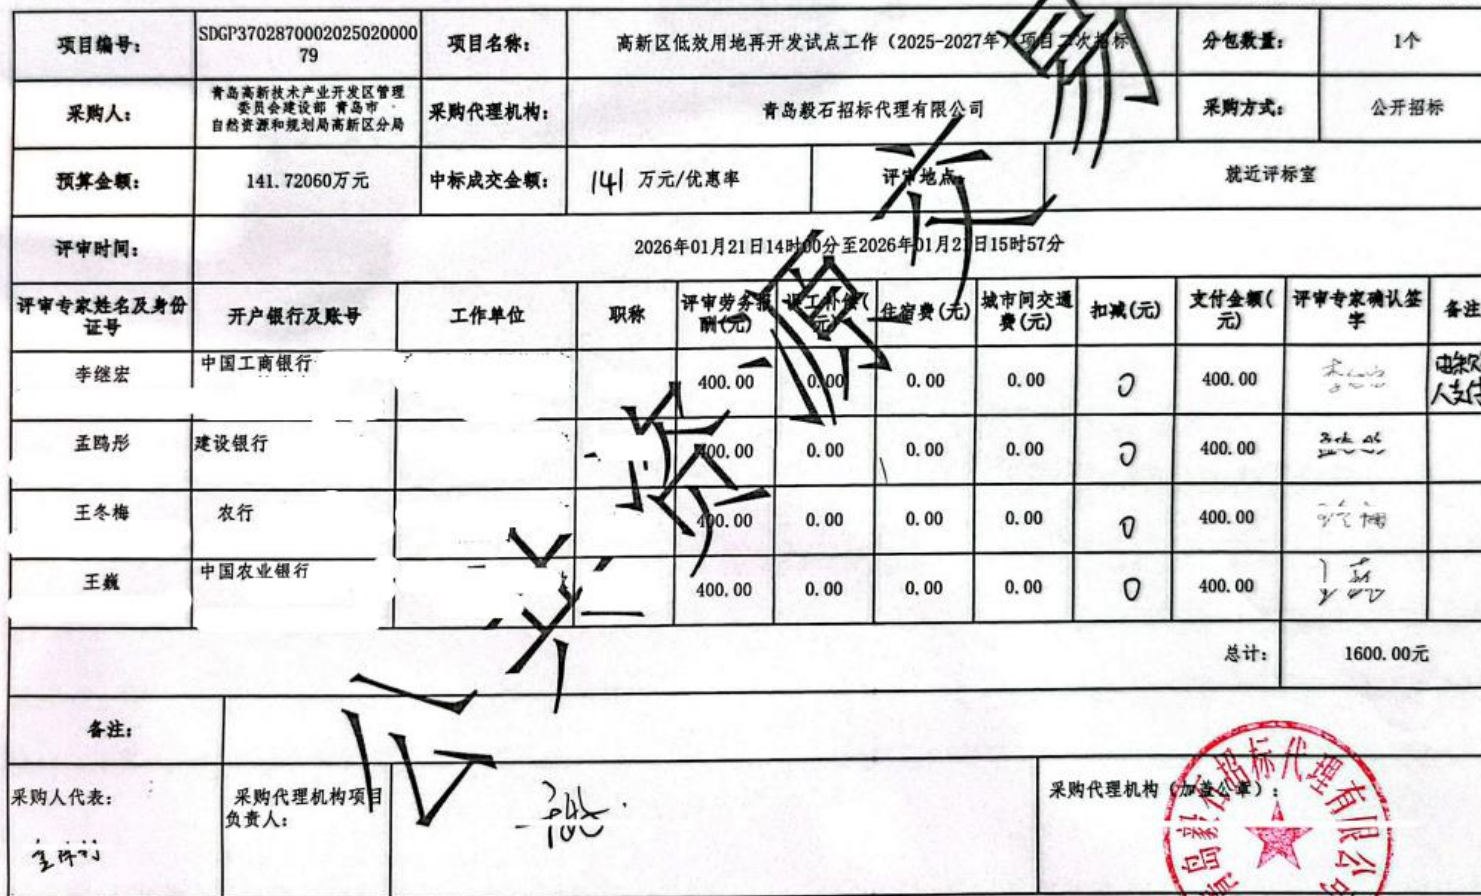 项目编号:
SDGP3702870002025020000
79
项目名称:
高新区低效用地再开发试点工作（2025-2027年）项目二次招标
分包数量:
1个
采购人:
青岛高新技术产业开发区管理
委员会建设部 青岛市
自然资源和规划局高新区分局
采购代理机构:
青岛毅石招标代理有限公司
采购方式:
公开招标
预算金额:
141.72060万元
中标成交金额:
141 万元/优惠率
评审地点:
就近评标室
评审时间:
2026年01月21日14时00分至2026年01月21日15时57分
评审专家姓名及身份
证号
开户银行及账号
工作单位
职称
评审劳务报
酬(元)
误工补偿(
元)
住宿费(元)
城市间交通
费(元)
扣减(元)
支付金额(
元)
评审专家确认签
字
备注
李继宏
中国工商银行
400.00
0.00
0.00
0.00
0
400.00
人支付
孟鸥彤
建设银行
400.00
0.00
0.00
0.00
0
400.00
王冬梅
农行
400.00
0.00
0.00
0.00
0
400.00
王巍
中国农业银行
400.00
0.00
0.00
0.00
0
400.00
总计:
1600.00元
备注:
采购人代表:
采购代理机构项目
负责人:
采购代理机构（加盖公章）:
招标代理有限公